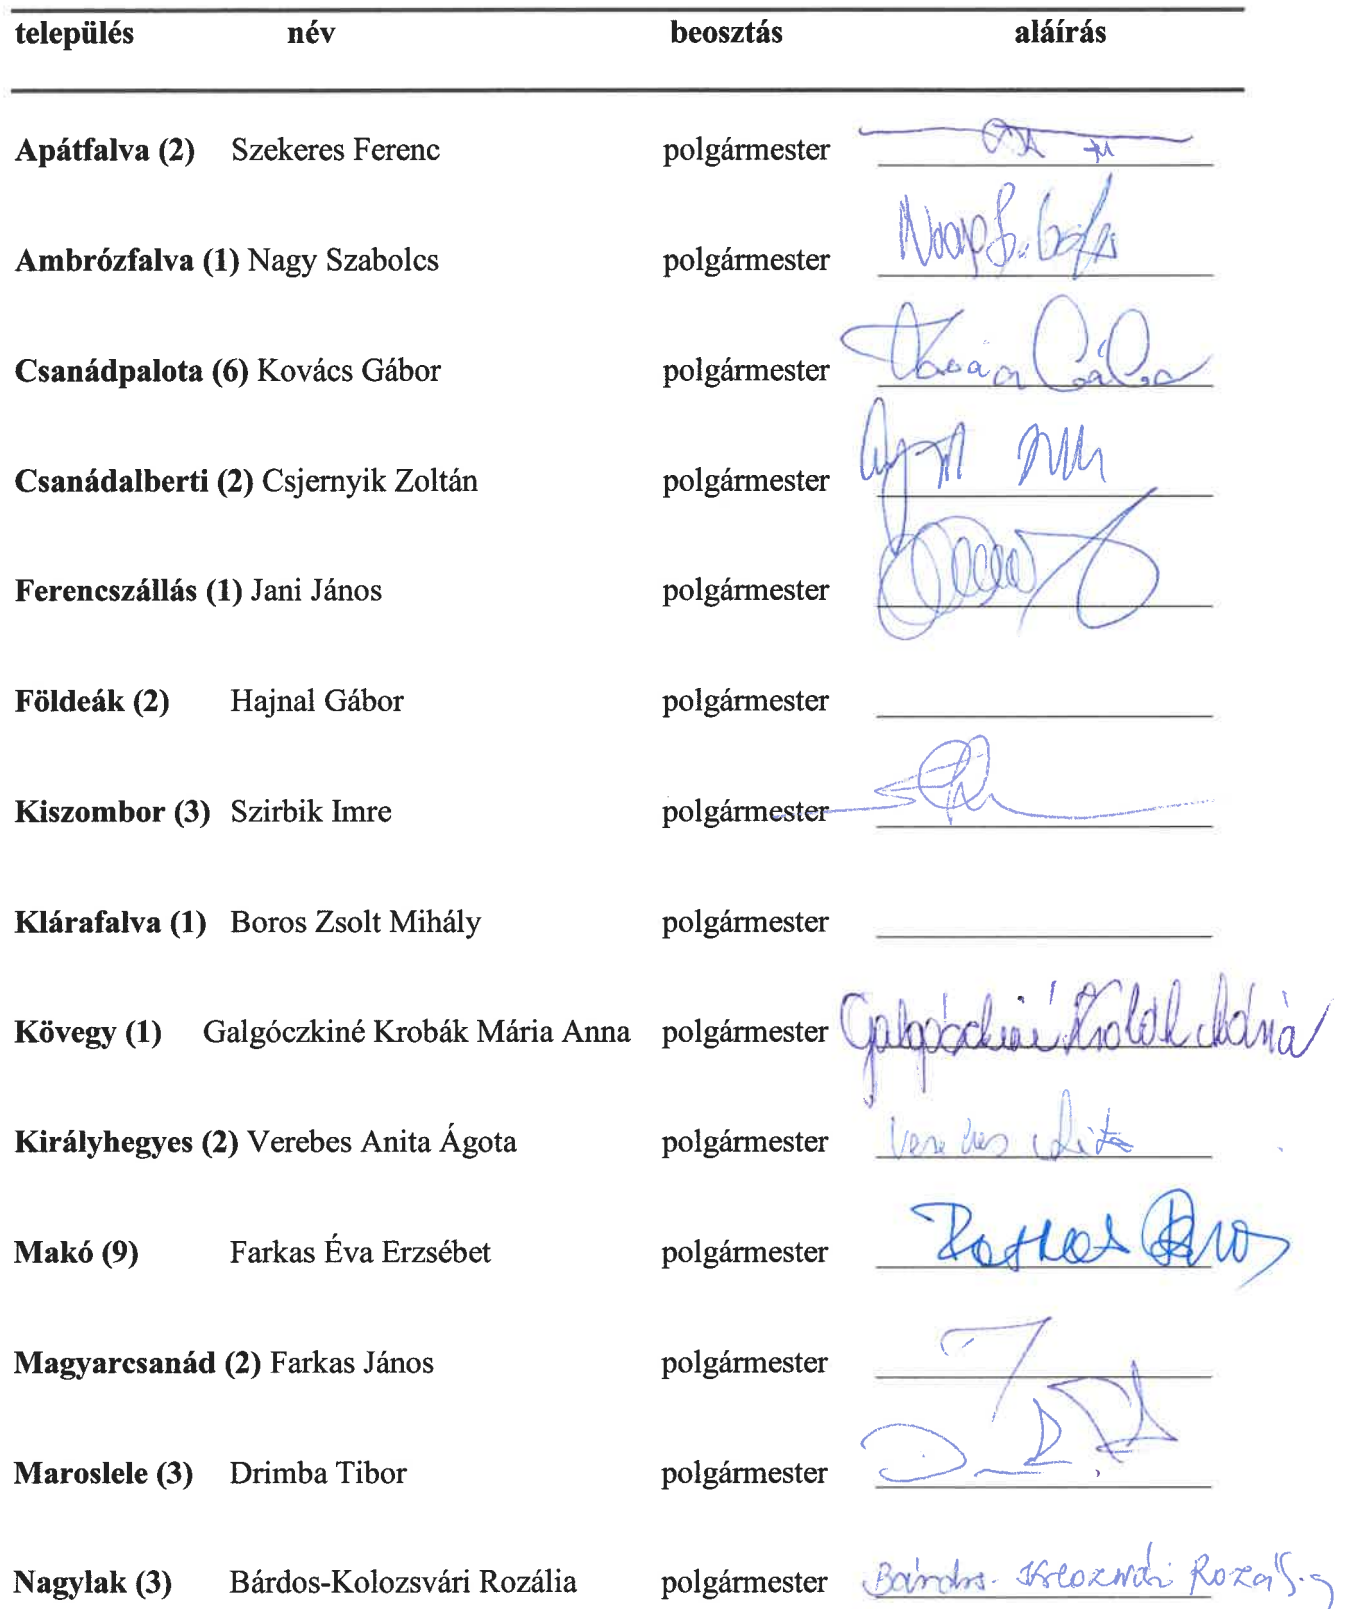 település név beosztás aláírás
Apátfalva (2) Szekeres Ferenc polgármester
Ambrózfalva (1) Nagy Szabolcs polgármester
Csanádpalota (6) Kovács Gábor polgármester
Csanádalberti (2) Csjernyik Zoltán polgármester
Ferencszállás (1) Jani János polgármester
Földeák (2) Hajnal Gábor polgármester
Kiszombor (3) Szirbik Imre polgármester
Klárafalva (1) Boros Zsolt Mihály polgármester
Kövegy (1) Galgóczkiné Krobák Mária Anna polgármester Galgóczkiné Krobák Mária
Királyhegyes (2) Verebes Anita Ágota polgármester Verebes Anita
Makó (9) Farkas Éva Erzsébet polgármester
Magyarcsanád (2) Farkas János polgármester
Maroslele (3) Drimba Tibor polgármester
Nagylak (3) Bárdos-Kolozsvári Rozália polgármester Bárdos-Kolozsvári Rozália